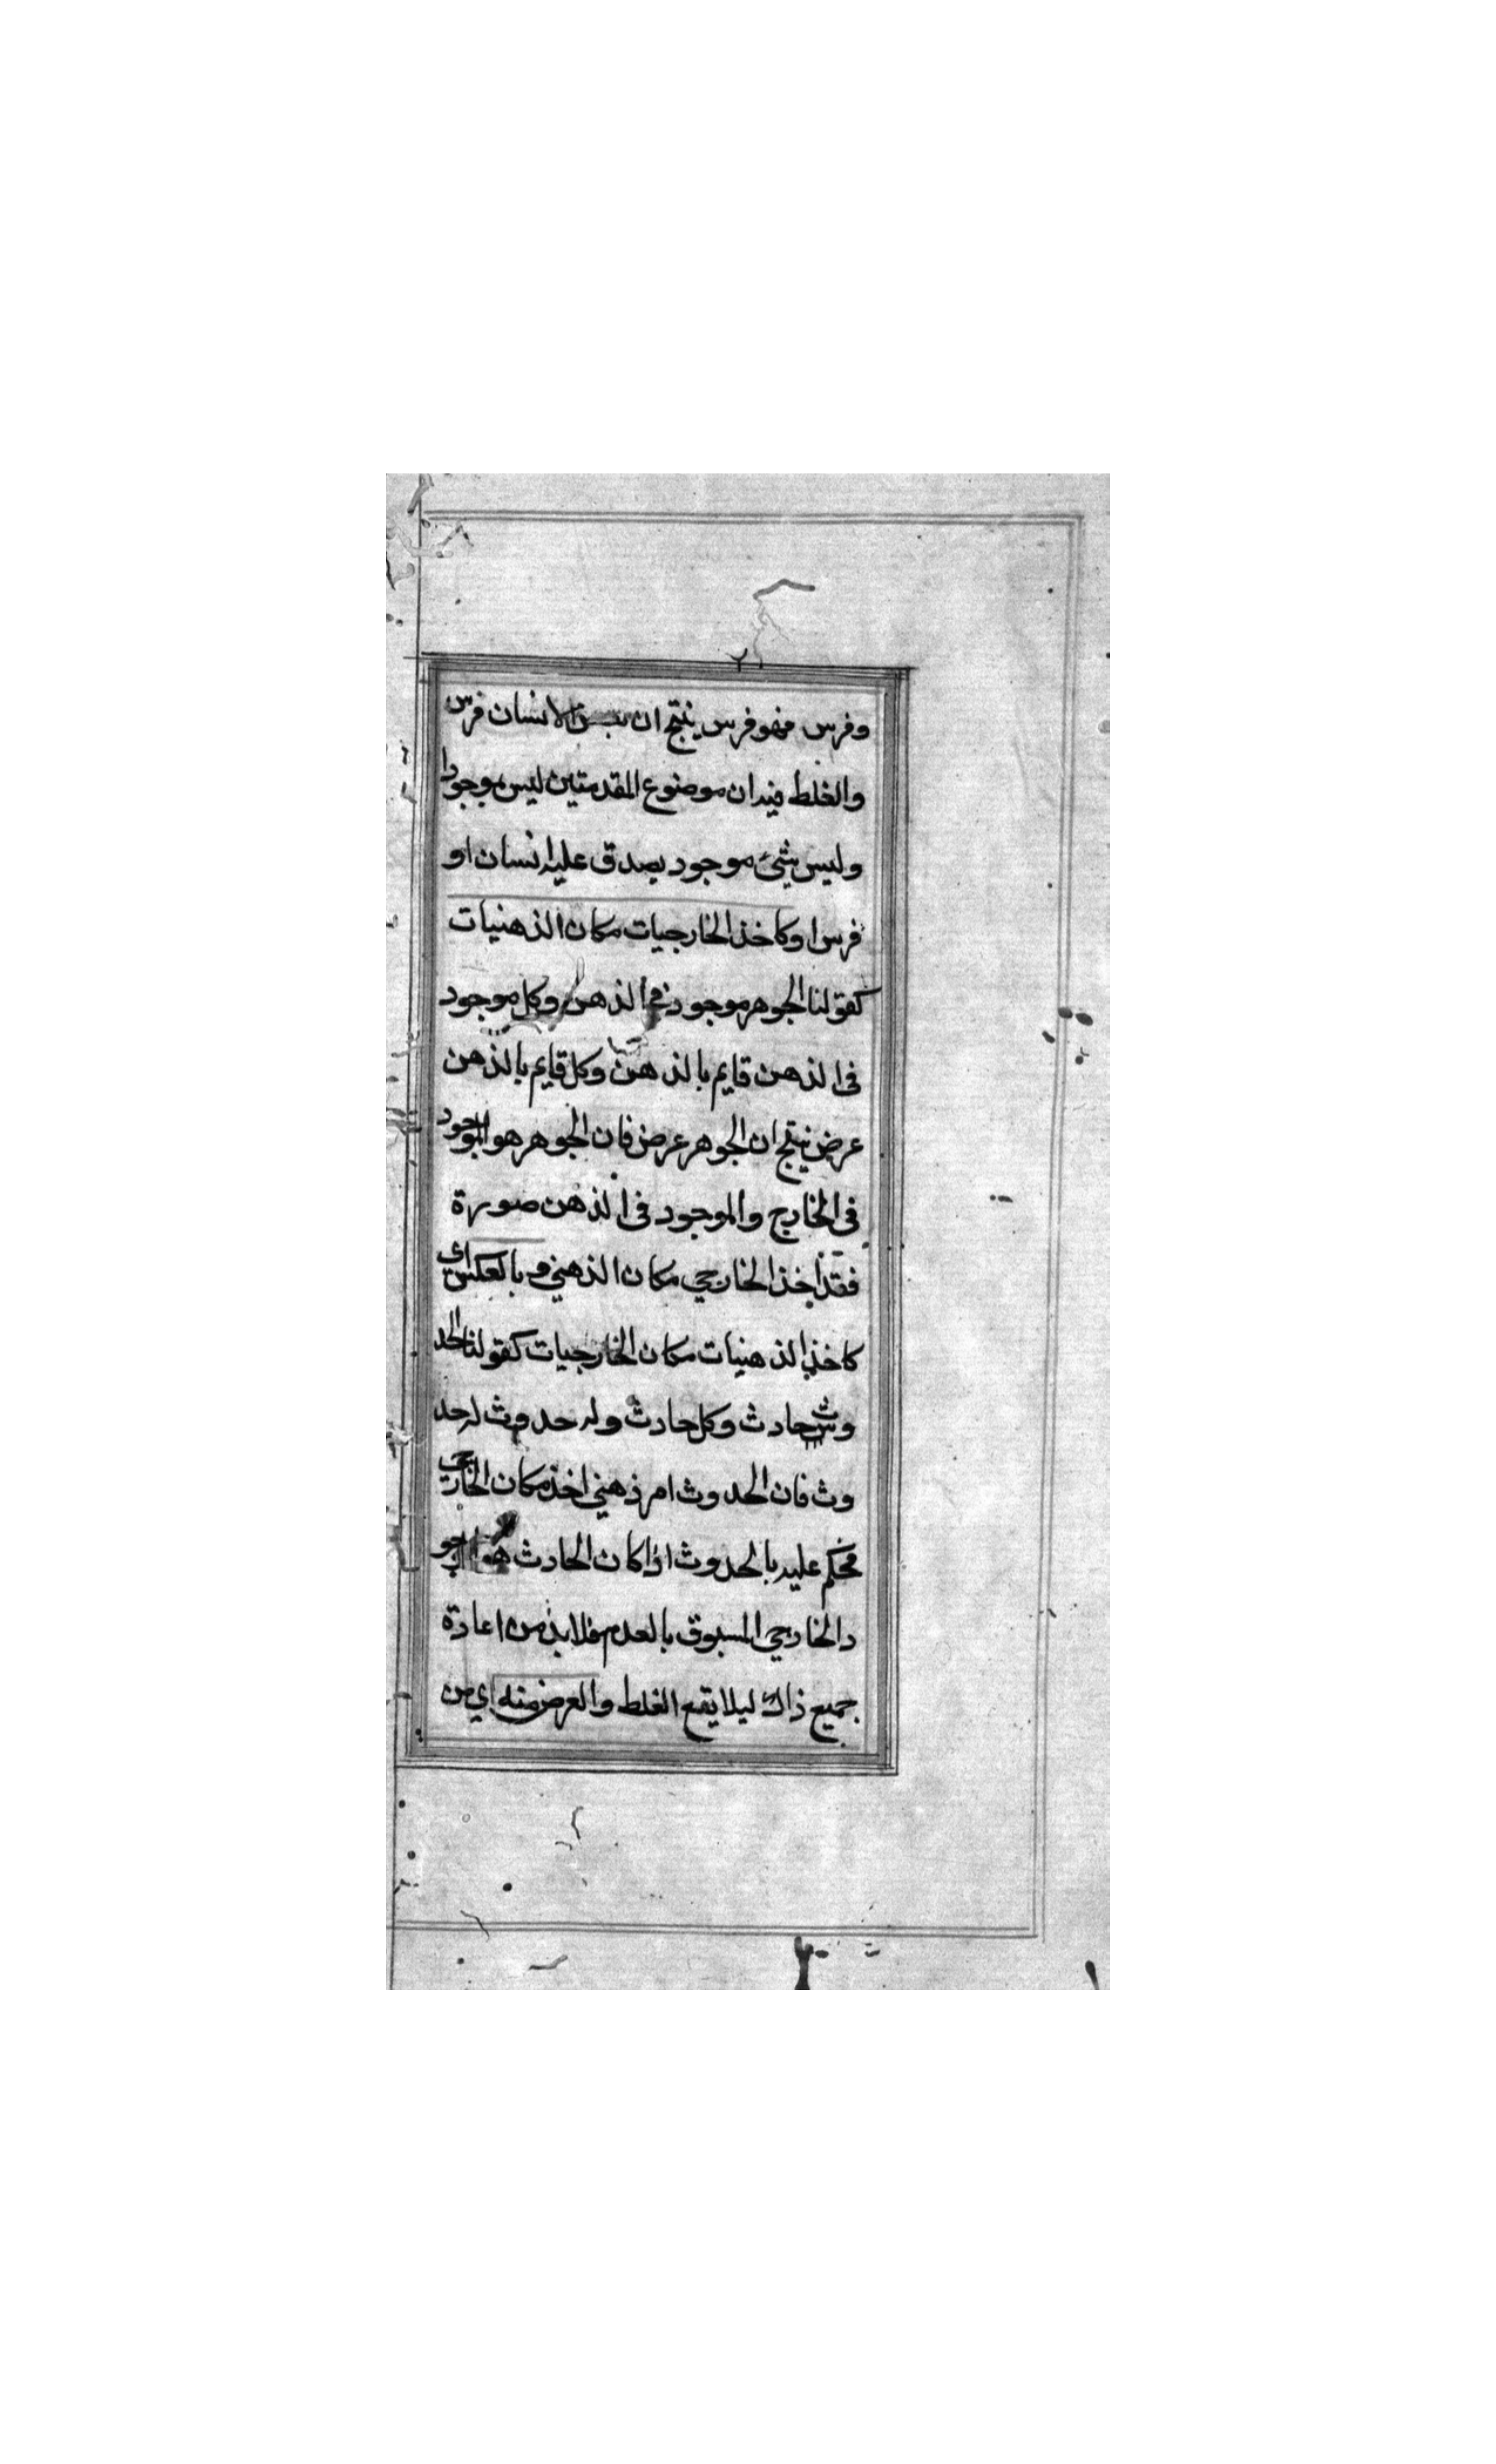 وفرس فهو فرس ينتج ان بعض الانسان فرس
والغلط فيه ان موضوع المقدمتين ليس موجودا
وليس شئ موجود يصدق عليه انسان او
فرس او كاخذ الخارجيات مكان الذهنيات
كقولنا الجوهر موجود في الذهن وكل موجود
في الذهن قايم بالذهن وكل قايم بالذهن
عرض ينتج ان الجوهر عرض فان الجوهر هو الموجود
في الخارج والموجود في الذهن صورة
فقد اخذ الخارجي مكان الذهني وبالعكس اي
كاخذ الذهنيات مكان الخارجيات كقولنا الحد
وث حادث وكل حادث وله حدوث له حد
وث فان الحدوث امر ذهني اخذ مكان الخارجي
فحكم عليه بالحدوث اذا كان الحادث هو
د الخارجي المسبوق بالعدم فلا بد من اعادة
جميع ذالك ليلا يقع الغلط والعرض منه اي من